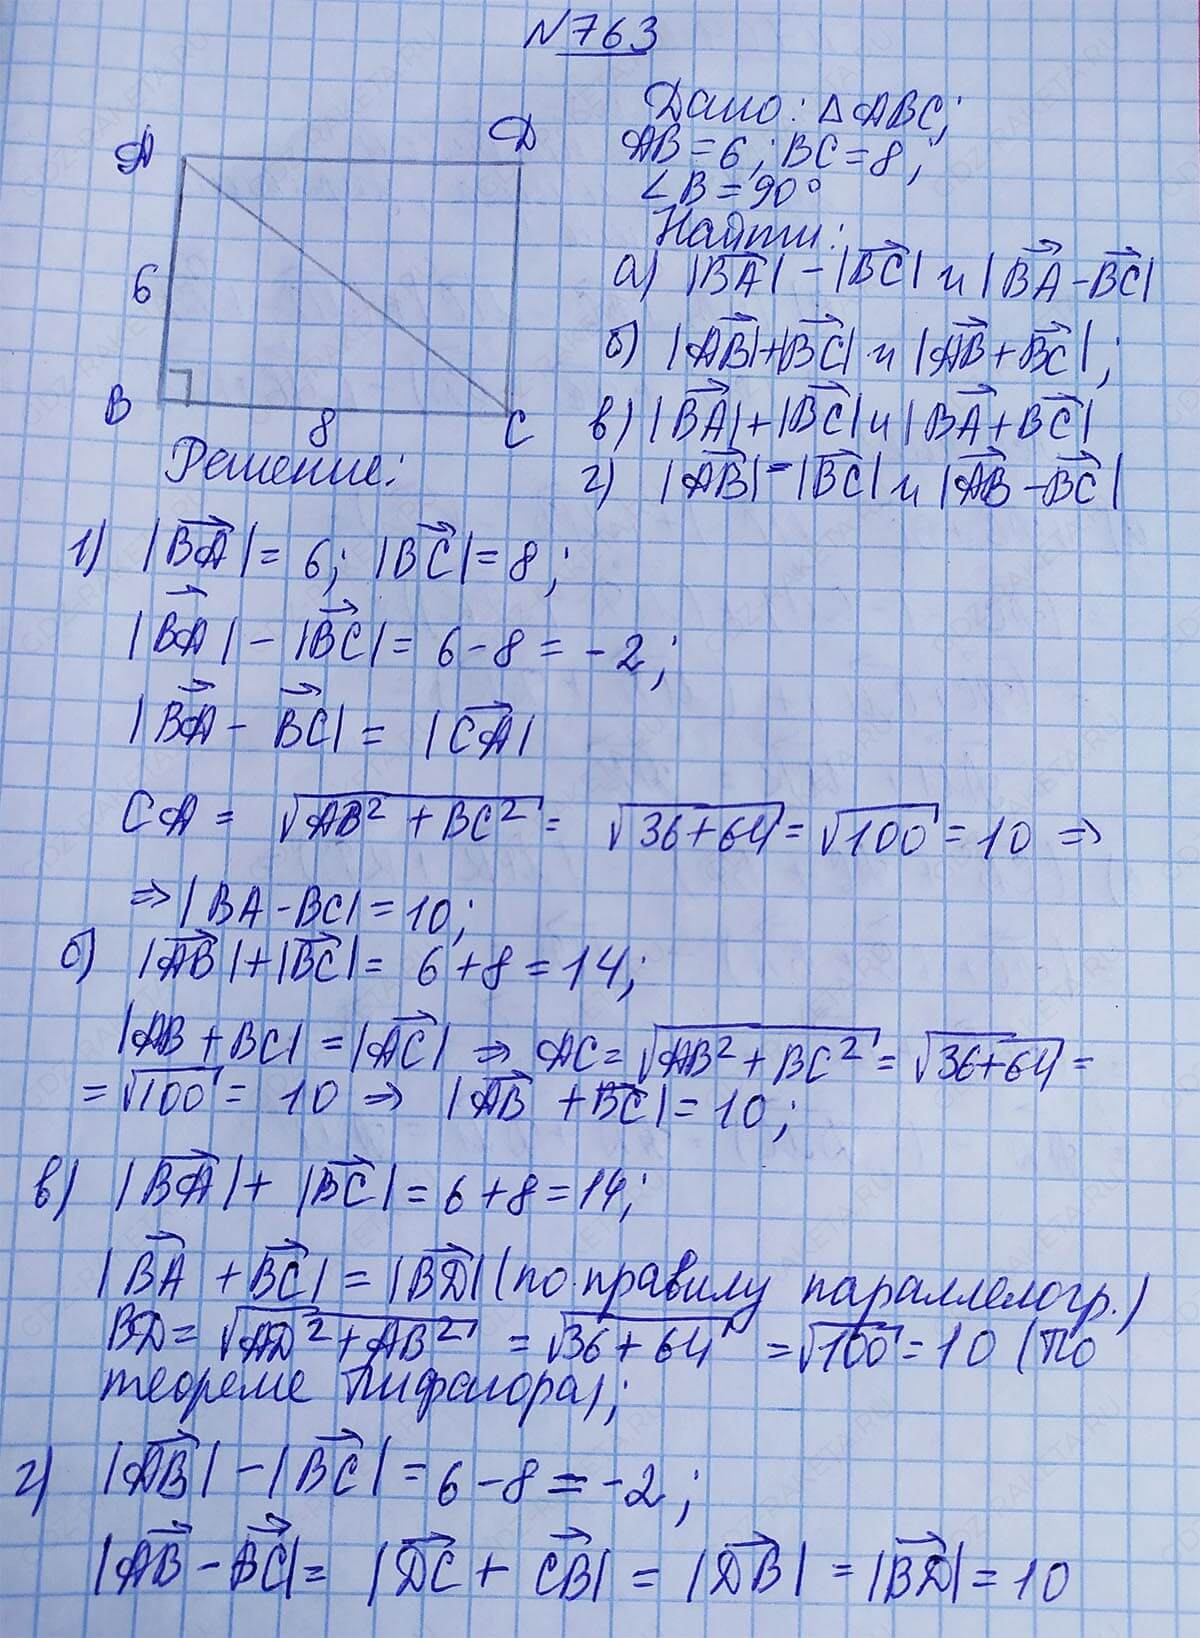 N763
A
D
6
B
8
C
Дано: △ABC;
AB=6; BC=8;
∠B=90°
Найти:
а) |BA→| - |BC→| и |BA→ - BC→|
б) |AB→|+|BC→| и |AB→+BC→|;
в) |BA→|+|BC→| и |BA→+BC→|
г) |AB→| - |BC→| и |AB→ - BC→|
Решение:
1) |BA→| = 6; |BC→| = 8;
|BA→| - |BC→| = 6 - 8 = -2;
|BA→ - BC→| = |CA→|
CA = √(AB² + BC²) = √(36+64) = √100 = 10 ⇒
⇒ |BA - BC| = 10;
б) |AB→|+|BC→| = 6+8 = 14;
|AB + BC| = |AC→| ⇒ AC = √(AB² + BC²) = √(36+64) =
= √100 = 10 ⇒ |AB→ + BC→| = 10;
в) |BA→| + |BC→| = 6+8 = 14;
|BA→ + BC→| = |BD→| (по правилу параллелогр.)
BD = √(AD² + AB²) = √(36+64) = √100 = 10 (По
теореме Пифагора);
г) |AB→| - |BC→| = 6 - 8 = -2;
|AB→ - BC→| = |DC→ + CB→| = |DB→| = |BD→| = 10